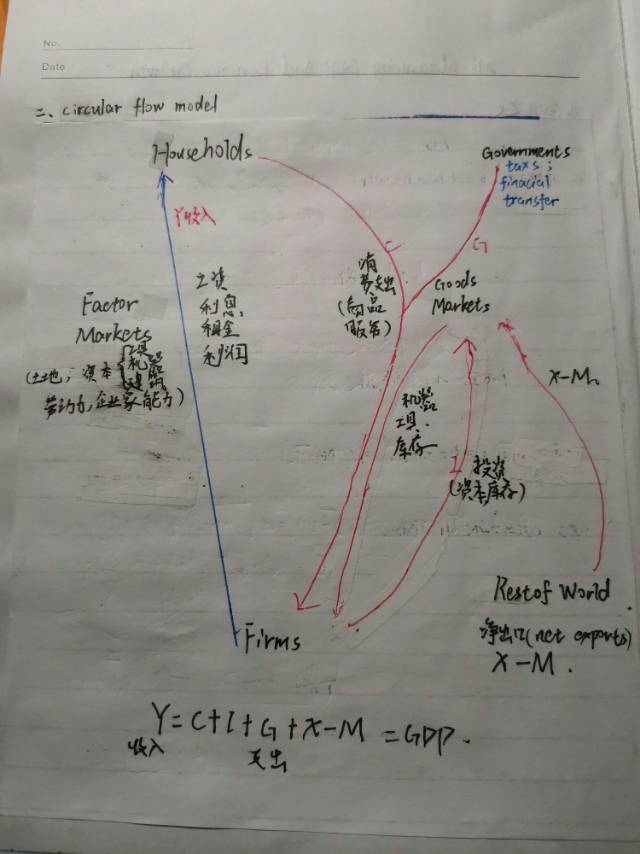 No.
Date
二、circular flow model
Households
Governments
taxs;
finacial
transfer
Y收入
C
G
工资
利息、
租金
利润
消
费支出
(商品
服务)
Goods
Markets
Factor
Markets
(土地, 资本
工具
机器
建筑
劳动力, 企业家能力)
X-M
机器
工具、
库存
I 投资
(资本库存)
Rest of World
净出口(net exports)
X-M.
Firms
Y=C+I+G+X-M=GDP.
收入
支出